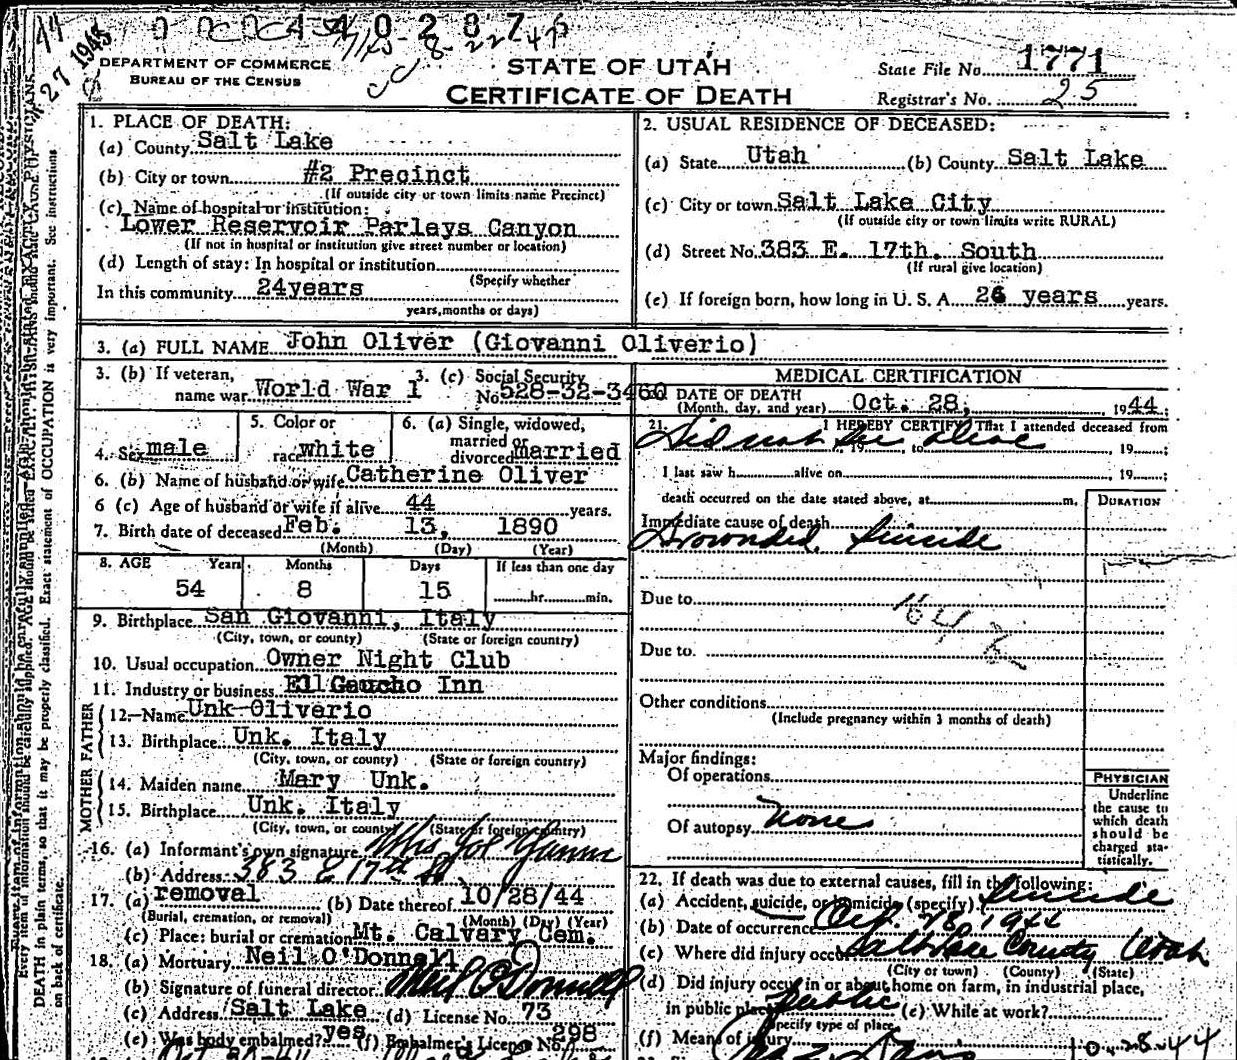 27 1945
DEPARTMENT OF COMMERCE
BUREAU OF THE CENSUS
STATE OF UTAH
CERTIFICATE OF DEATH
State File No. 1771
Registrar's No. 25
1. PLACE OF DEATH:
(a) County Salt Lake
(b) City or town #2 Precinct
(If outside city or town limits name Precinct)
(c) Name of hospital or institution:
Lower Reservoir Parleys Canyon
(If not in hospital or institution give street number or location)
(d) Length of stay: In hospital or institution
(Specify whether
In this community 24years
years, months or days)
2. USUAL RESIDENCE OF DECEASED:
(a) State Utah (b) County Salt Lake
(c) City or town Salt Lake City
(If outside city or town limits write RURAL)
(d) Street No. 383 E. 17th. South
(If rural give location)
(e) If foreign born, how long in U. S. A. 26 years years.
3. (a) FULL NAME John Oliver (Giovanni Oliverio)
3. (b) If veteran,
name war World War 1
3. (c) Social Security
No. 528-32-3460
4. Sex male
5. Color or
race white
6. (a) Single, widowed,
married or
divorced married
6. (b) Name of husband or wife Catherine Oliver
6 (c) Age of husband or wife if alive 44 years.
7. Birth date of deceased Feb. 13, 1890
(Month) (Day) (Year)
8. AGE Years Months Days If less than one day
54 8 15 hr. min.
9. Birthplace San Giovanni, Italy
(City, town, or county) (State or foreign country)
10. Usual occupation Owner Night Club
11. Industry or business El Gaucho Inn
FATHER
12. Name Unk Oliverio
13. Birthplace Unk. Italy
(City, town, or county) (State or foreign country)
MOTHER
14. Maiden name Mary Unk.
15. Birthplace Unk. Italy
(City, town, or county) (State or foreign country)
16. (a) Informant's own signature Mrs Joe
(b) Address 383 E 17th So
17. (a) removal (b) Date thereof 10/28/44
(Burial, cremation, or removal) (Month) (Day) (Year)
(c) Place: burial or cremation Mt. Calvary Cem.
18. (a) Mortuary Neil O'Donnell
(b) Signature of funeral director Neil O'Donnell
(c) Address Salt Lake (d) License No. 73
(e) Was body embalmed? yes (f) Embalmer's License No. 298
MEDICAL CERTIFICATION
20. DATE OF DEATH
(Month, day, and year) Oct. 28, 1944
21. I HEREBY CERTIFY, That I attended deceased from
Did not see alive
, 19, to , 19;
I last saw h alive on , 19;
death occurred on the date stated above, at m.
DURATION
Immediate cause of death
Drownded. Suicide
Due to
164
Due to.
Other conditions
(Include pregnancy within 3 months of death)
Major findings:
Of operations
Of autopsy None
PHYSICIAN
Underline
the cause to
which death
should be
charged sta-
tistically.
22. If death was due to external causes, fill in the following:
(a) Accident, suicide, or homicide (specify) Suicide
(b) Date of occurrence Oct. 28, 1944
(c) Where did injury occur Salt Lake County Utah
(City or town) (County) (State)
(d) Did injury occur in or about home on farm, in industrial place,
in public place Public (e) While at work?
(Specify type of place
(f) Means of injury
10-28-44